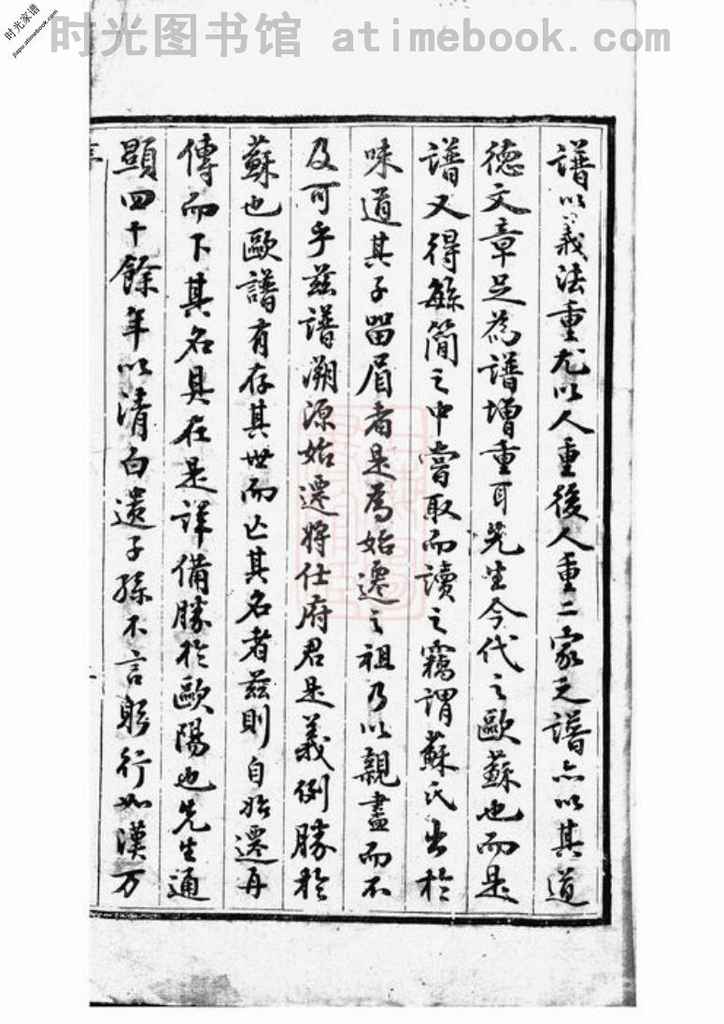 时光图书馆 atimebook.com
时光家谱
jiapu.atimebook.com
譜以義法重尤以人重後人重二家之譜亦以其道
德文章足為譜增重耳先生今代之歐蘇也而是
譜又得繇簡之中嘗取而讀之竊謂蘇氏出於
味道其子留眉者是為始遷之祖乃以親盡而不
及可乎茲譜溯源始遷將仕府君是義例勝於
蘇也歐譜有存其世而亡其名者茲則自始遷再
傳而下其名具在是詳備勝於歐陽也先生通
顯四十餘年以清白遺子孫不言躬行如漢万